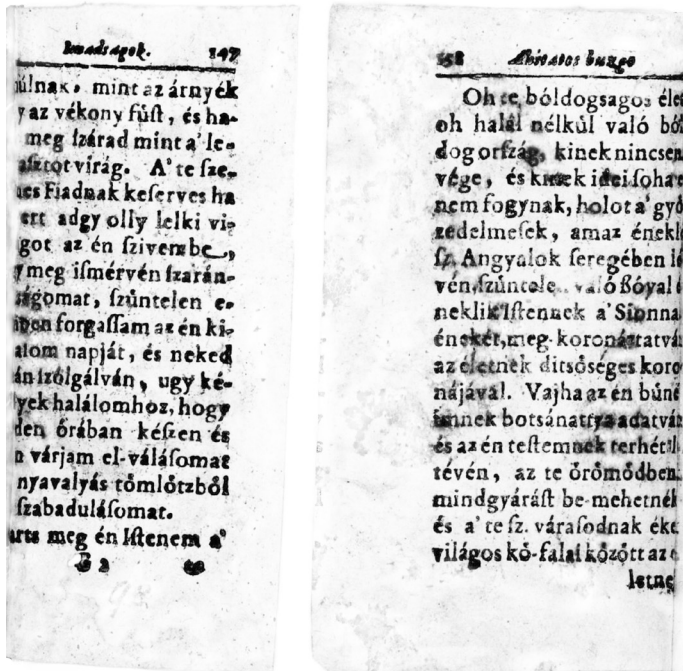 Imadságok. 147
múlnak, mint az árnyék
y az vékony füst, és ha-
meg ſzárad mint a' le-
aſztot virág. A' te ſze-
nes Fiadnak keſerves ha
ert adgy olly lelki vi-
got az én ſzivembe,
y meg iſmérvén ſzarán-
ságomat, ſzüntelen e-
forgaſſam az én ki-
alom napját, és neked
án ſzólgálván, ugy ké-
lyek halálomhoz, hogy
den órában kéſzen és
n várjam el-váláſomat
nyavalyás tömlötzből
ſzabaduláſomat.
arts meg én Iſtenem a'
158 Áhitatos buzgo
Oh te bóldogsagos éle
oh halál nélkül való bó
dog orſzág, kinek nincsen
vége, és kinek idei ſoha
nem fogynak, holot a' gyö
zedelmeſek, amaz énekl
ſz. Angyalok ſeregében lé
vén, ſzüntele való ßóyal
neklik Iſtennek a' Sionna
énekét, meg-koronáztatvá
az életnek ditsőséges koro
nájával. Vajha az én bűne
imnek botsánattya adatván
és az én teſtemnek terhét
tévén, az te örömödben
mindgyáráſt be-mehetnék
és a' te ſz. váraſodnak éke
világos kő-falai között az
letne